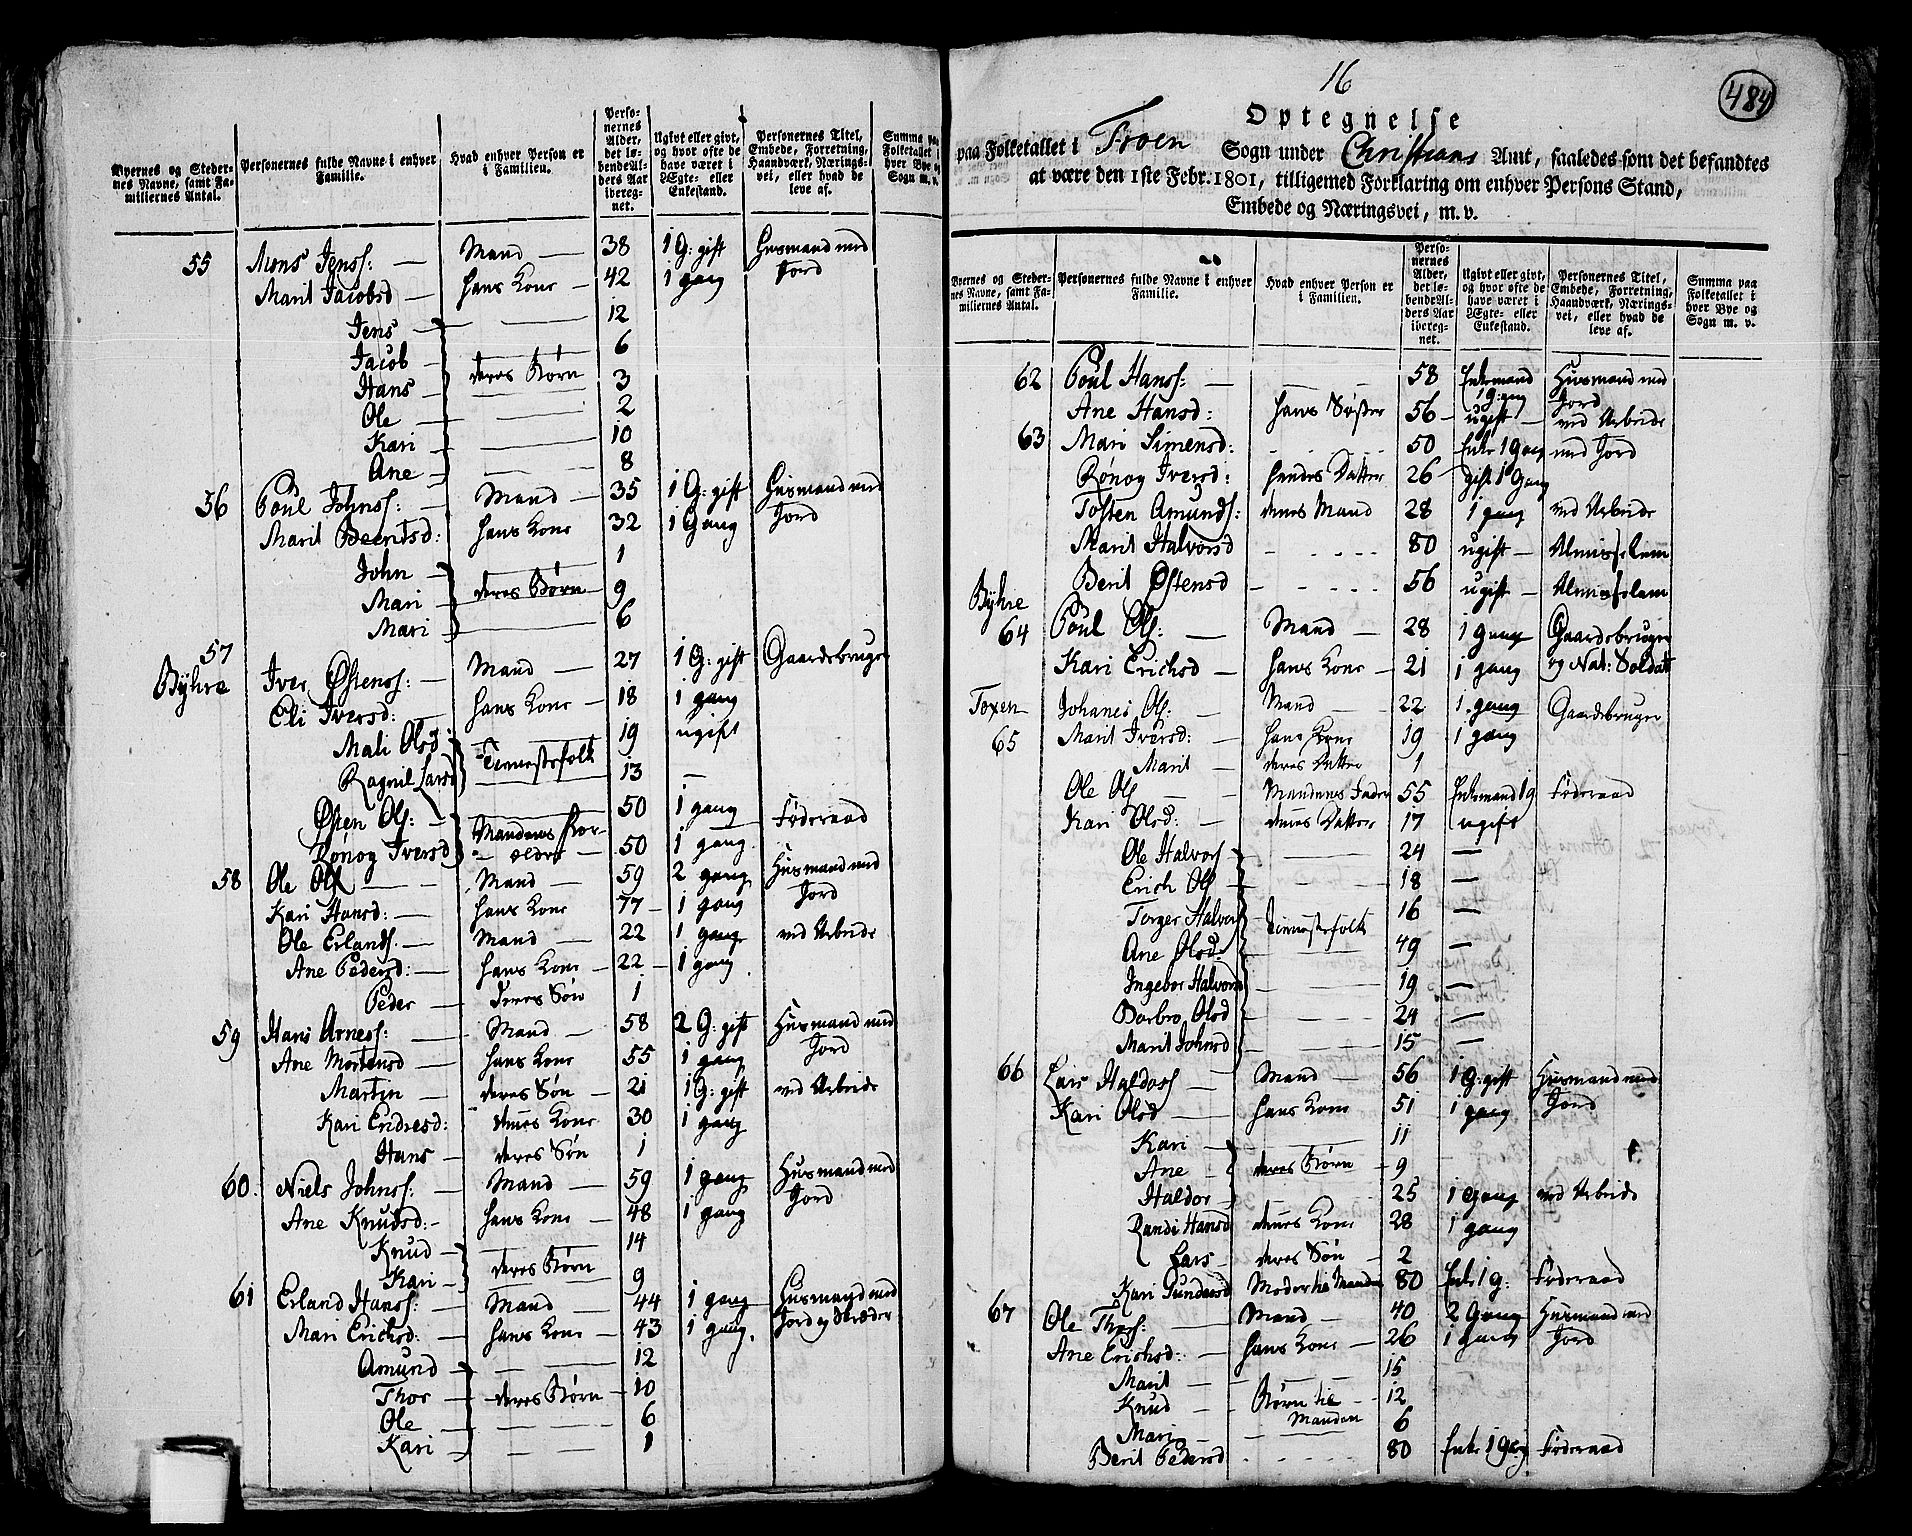 Byernes og Stedernes Navne, samt Familiernes Antal. | Personernes fulde Navne i enhver Familie. | Hvad enhver Person er i Familien. | Personernes Alder, det løbende Alders Aar iberegnet. | Ugivt eller givt, og hvor ofte de have været i Ægte- eller Enkestand. | Personernes Titel, Embede, Forretning, Haandværk, Næringsvei, eller hvad de leve af. | Summa paa Folketallet i hver Bye og Sogn m. v.
55 Mons Jenss: — Mand — 38 1 G: gift Husmand med
Marit Jacobsd — hans Kone — 42 1 gang Jord
Jens — 12
Jacob — 6
Hans — deres Børn 3
Ole — 2
Kari — 10
Ane — 8
56 Poul Johnss: — Mand — 35 1 G: gift Husmand med
Marit Beentsd: hans Kone 32 1 Gang Jord
John — 1
Mari — deres Børn 9
Mari — 6
57
Byhre Iver Østenss: — Mand — 27 1 G: gift Gaardebruger
Eli Iversd: — hans Kone — 18 1 gang
Mali Olsd: 19 ugift
Ragnil Larsd Tienestefolk 13 —
Østen Ols: — Mandens For- 50 1 gang Føderaad
Rønog Iversd — ældre — 50 1 gang
58 Ole Ols — Mand — 59 2 gang Husmand med
Kari Hansd: — hans Kone 77 — 1 gang Jord
Ole Erlands. — Mand — 22 1 gang ved Arbeide
Ane Pedersd: — hans Kone — 22 — 1 gang
Peder — deres Søn 1
59 Hans Arness: — Mand — 58 2 G: gift Husmand med
Ane Mortensd — hans Kone 55 1 gang Jord
Martin — deres Søn — 21 1 G: gift ved Arbeide
Kari Endresd: dennes Kone 30 1 gang
Hans — deres Søn 1
60. Niels Johnss: — Mand — 59 1 gang Husmand med
Ane Knudsd: — hans Kone — 48 1 gang Jord
Knud — 14
Kari — deres Børn 9
61 Erland Hanss: — Mand — 44 1 gang Husmand med
Mari Erichsd: — hans Kone — 43 1 gang. Jord og Skræder
Amund — 12
Thor — deres Børn — 10
Ole — 6
Kari — 1
16
484
Optegnelse
paa Folketallet i Froen Sogn under Christians Amt, saaledes som det befandtes
at være den 1ste Febr. 1801, tilligemed Forklaring om enhver Persons Stand,
Embede og Næringsvei, m. v.
Byernes og Stedernes Navne, samt Familiernes Antal. | Personernes fulde Navne i enhver Familie. | Hvad enhver Person er i Familien. | Personernes Alder, det løbende Alders Aar iberegnet. | Ugivt eller givt, og hvor ofte de have været i Ægte- eller Enkestand. | Personernes Titel, Embede, Forretning, Haandværk, Næringsvei, eller hvad de leve af. | Summa paa Folketallet i hver Bye og Sogn m. v.
62 Poul Hanss: — 58 Enkemand 1 gang Husmand med Jord
Ane Hansd: hans Søster 56 — ugift — ved Arbeide
63 Mari Simensd: 50 Enke 1 Gang med Jord
Rønog Iversd: hendes Datter 26 — gift 1 Gang
Tosten Amunds: dennes Mand 28 1 gang ved Arbeide
Marit Halvorsd — 80 ugift — Almisselem
Berit Østensd — 56 ugift — Almisselem
Byhre
64 Poul Ols: — Mand — 28 1 Gang Gaardebruger
Kari Erichsd hans Kone — 21 1 gang og Nat: Soldat
Toxen Johanes Ols: — Mand — 22 1. gang Gaardebruger
65 Marit Iversd: — hans Kone 19 1 gang
Marit — deres Datter 1
Ole Ols — Mandens Fader 55 Enkemand 1 g Føderaad
Kari Olsd: — dennes Datter 17 ugift
Ole Halvors — 24 —
Erich Ols — 18 —
Torger Halvors Tienestefolk 16 —
Ane Olsd: 49 —
Ingebor Halvorsd 19 —
Barbro Olsd 24 —
Marit Johnsd 15 —
66 Lars Haldors — Mand — 56 1 G: gift Husmand med
Kari Olsd — hans Kone 51 1 gang Jord
Kari — 11
Ane — deres Børn — 9
Haldor — 25 1 Gang ved Arbeide
Randi Hansd dennes Kone 28 1 gang
Lars — deres Søn — 2
Kari Gundersd Moder til Manden 80 Enke 1 g: Føderaad
67 Ole Thors: — Mand — 40 2 Gang Husmand med
Ane Erichsd: — hans Kone — 26 1 gang Jord
Marit — 15
Knud — Børn til — 12
Mari — Manden 6
Berit Pedersd 80 Enke 1 gang Føderaad